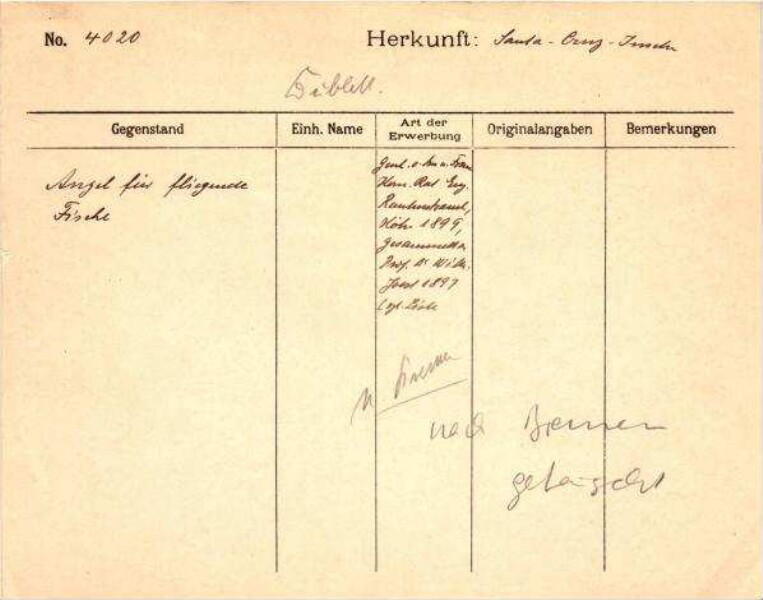 No. 4020 Herkunft: Santa-Cruz-Inseln
Gegenstand Einh. Name Art der Erwerbung Originalangaben Bemerkungen
Angel für fliegende
Fische
Gesch. v. Frau
Rautenstrauch,
Köln 1899,
gesammelt v.
Prof. Dr Wilh.
Joest 1897
n. Bremen
nach Bremen
getauscht